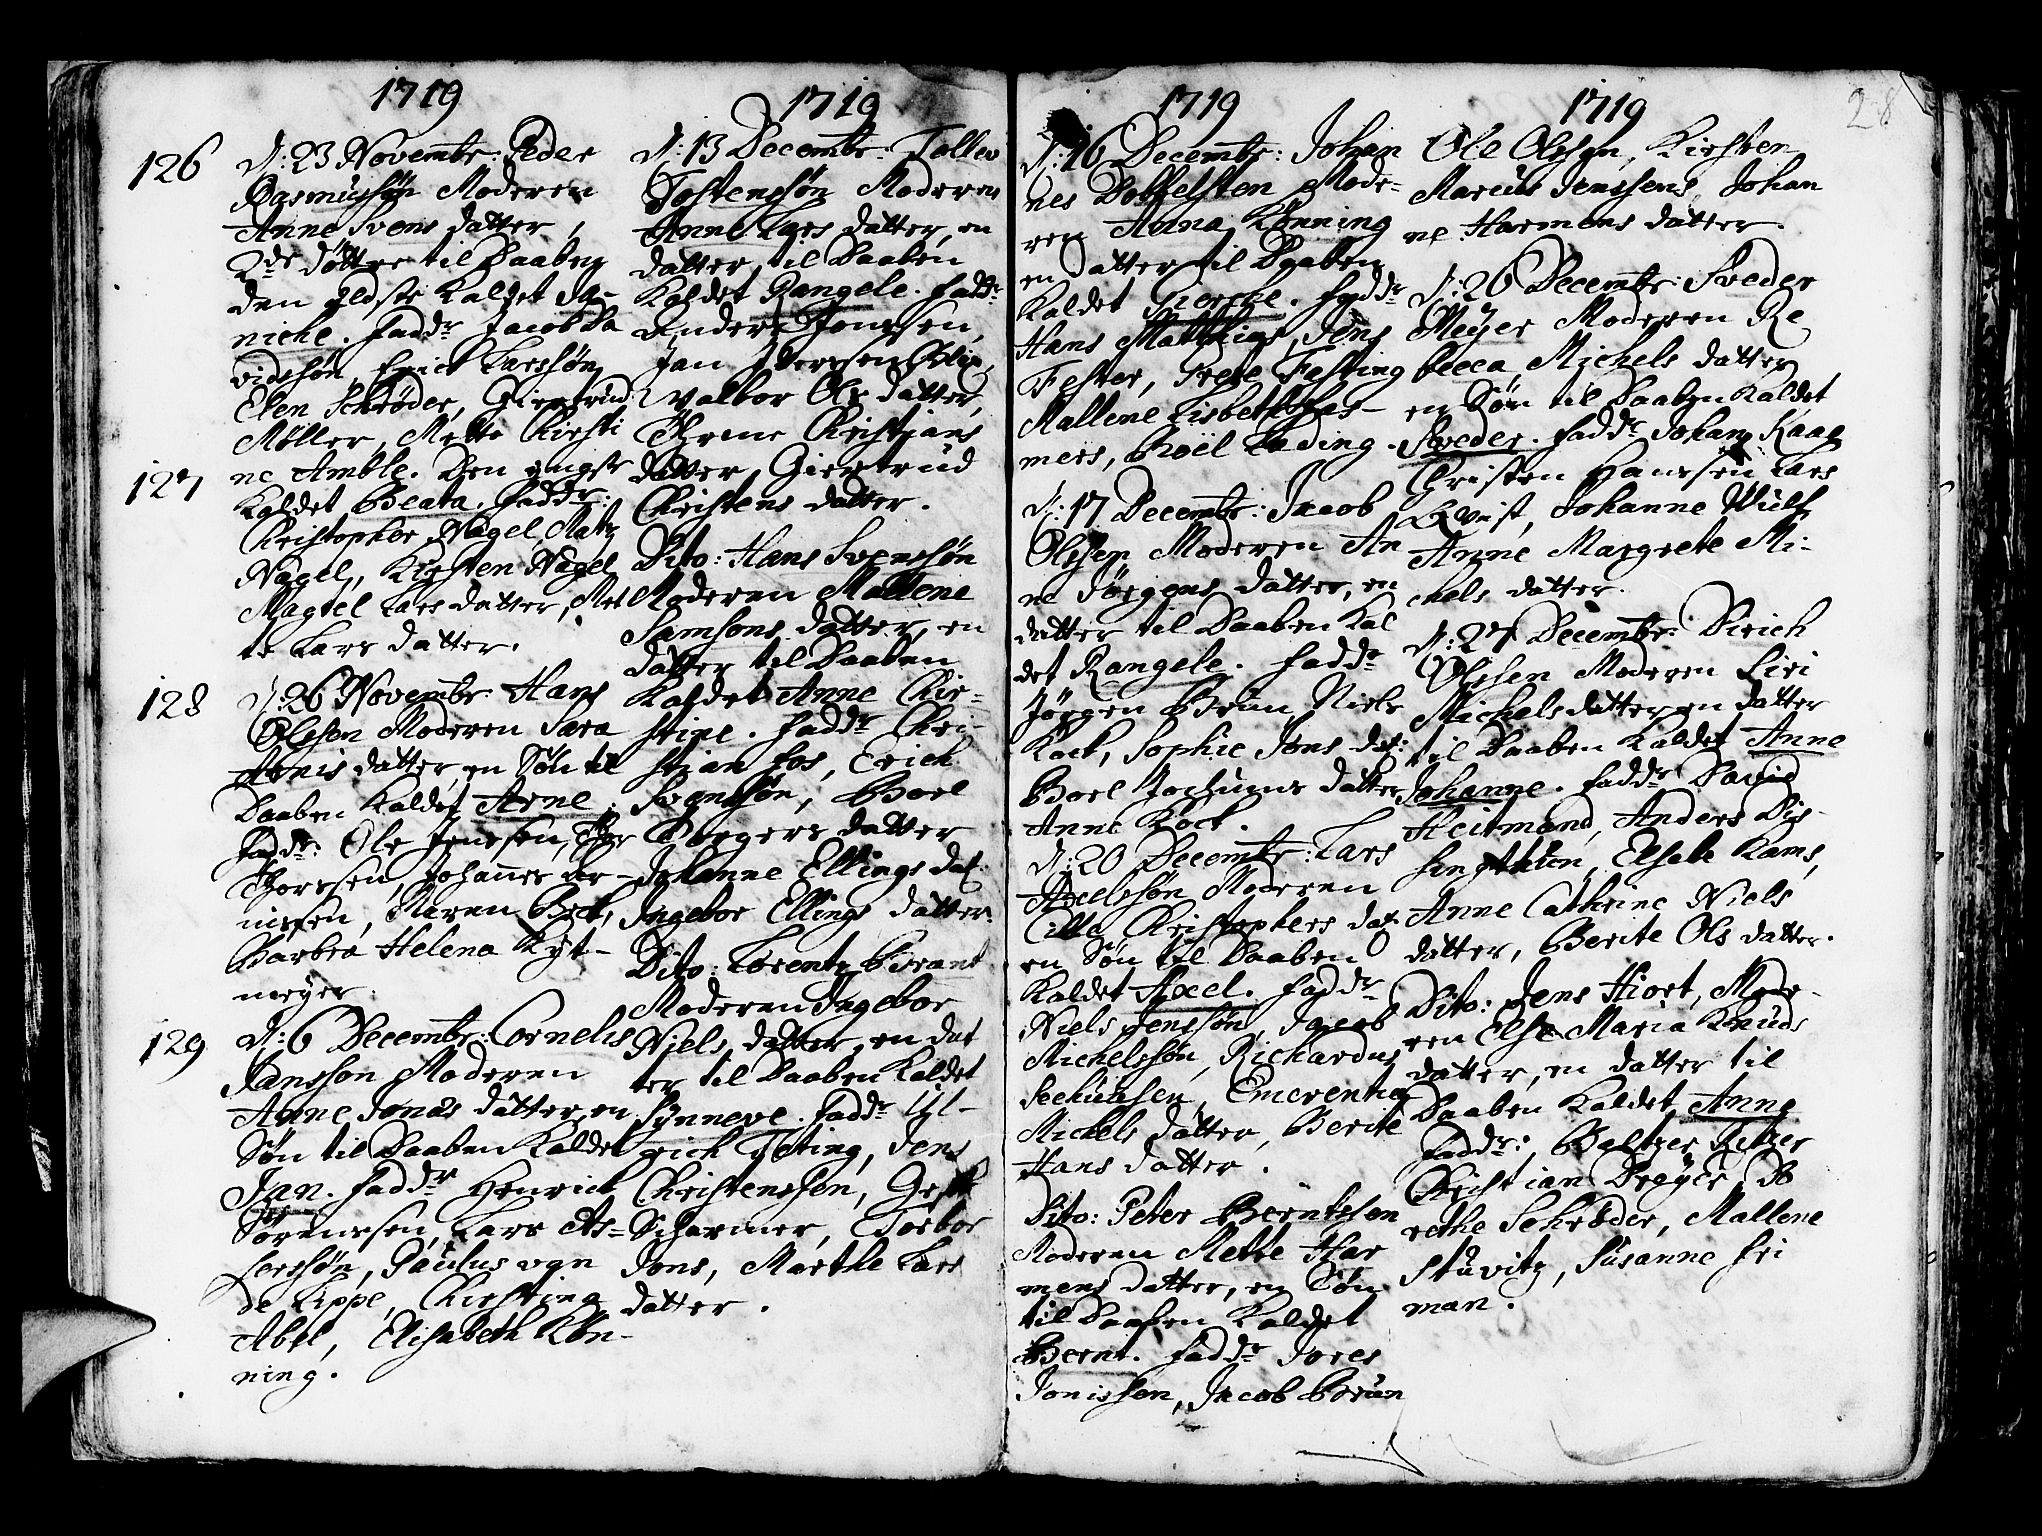 1719
126
d: 23 Novembr: Peder
Rasmussøn Moderen
Anne Svens datter,
2de døttre til Daaben
den eldste kaldet Da-
niche. Fadd:r Jacob Da
vidssøn, Erick Larssøn,
Elen Schrøder, Giertrud
Møller, Mette Kirsti
ne Amble. Den yngste
127
kaldet Beata. Fadd:r
Christopher Nagel, Matz
Nagel, Kirsten Nagel
Magrel Lars datter, Met
te Lars datter.
128
d: 26 Novembr: Hans
Olssen Moderen Sara
Arnis datter, en Søn til
Daaben kaldet Arne.
Fadd:r Ole Jenssen,
Thorssen, Johannes Ar-
nissen, Maren Beck,
Barbra Helena Ryt-
meyer.
129
d: 6 Decembr: Cornelis
Jansson Moderen
Anne Jonas datter, en
Søn til Daaben kaldet
Jan. Fadd:r Henrick
Sørenssen, Lars As-
lerssøn, Paulus von
de Lippe, Kirstine
Abel, Elisabeth Køn-
ning.
1719
d: 13 Decembr: Tollev
Tostenssøn Moderen
Anne Lars datter, en
datter til Daaben
kaldet Rangele. Fadd:r
Anders Jonssen,
Jan Iverssen
Valbor Ols datter,
Christians
datter, Giertrud
Christens datter.
Dito: Hans Svenssøn
Moderen Mallene
Samsons datter, en
datter til Daaben
kaldet Anne Chir-
stine. Fadd:r Chri-
stian Fos, Erich
Svenssøn, Boel
Borgers datter
Johanne Ellings dat:
Ingebor Ellings datter.
Dito: Lorentz Brant
Moderen Ingebor
Niels datter, en dat
ter til Daaben kaldet
Synneve. Fadd:r Ul-
rich Tyting, Jens
Christenssøn,
Scharmer, Torbor
Jons, Marthe Lars
datter.
1719
d: 16 Decembr: Johan
nes Mode-
ren Anna Kønning
en datter til Daaben
kaldet Fadd:r
Hans Matthias, Jens
Fester, Grete Festing
Mallene Lisbeth
mers, Boël Lading.
d: 17 Decembr: Jacob
Olssen Moderen An
ne Jørgens datter, en
datter til Daaben kal
det Rangele. Fadd:r
Jørgen Brun, Niels
Kock, Sophie Jons dat:
Boel Jochums datter,
Anne Kock.
d: 20 Decembr: Lars
Axelssøn Moderen
Cille Christophers dat:
en Søn til Daaben
kaldet Axel. Fadd:r
Niels Jenssøn, Jacob
Michelssøn, Richardus
Seehuusen, Emerentia
Michels datter, Berite
Hans datter.
Dito: Peter Berntsson
Moderen Mette Har
mens datter, en Søn
til Daaben kaldet
Bernt. Fadd:r Jores
Jonissen, Jacob Brun
1719
28
Ole Olssen, Kirsten
Marcus Jenssens, Johan
ne Harmens datter.
d: 26 Decembr: Sveder
Meÿer Moderen Re
becca Michels datter
en Søn til Daaben kaldet
Sveder. Fadd:r Johan Kaae
Christen Hanssen, Lars
Qvist, Johanne Wulf
Anne Margrete Mi-
chels datter.
d: 27 Decembr: Dirich
Olssen Moderen Siri
Michels datter en datter
til Daaben kaldet Anne
Johanne. Fadd:r David
Heitmand, Anders Dis-
Elsebe Kams,
Anne Cathrine Niels
datter, Berite Ols datter.
Dito: Jens Hiort, Mode-
ren Else Maria Knuds
datter, en datter til
Daaben kaldet Anne
Fadd:r Baltzer Fetzer
Christian Dreÿer, Do
rethe Schrøder, Mallene
Stuvitz, Susanne Fri
man.